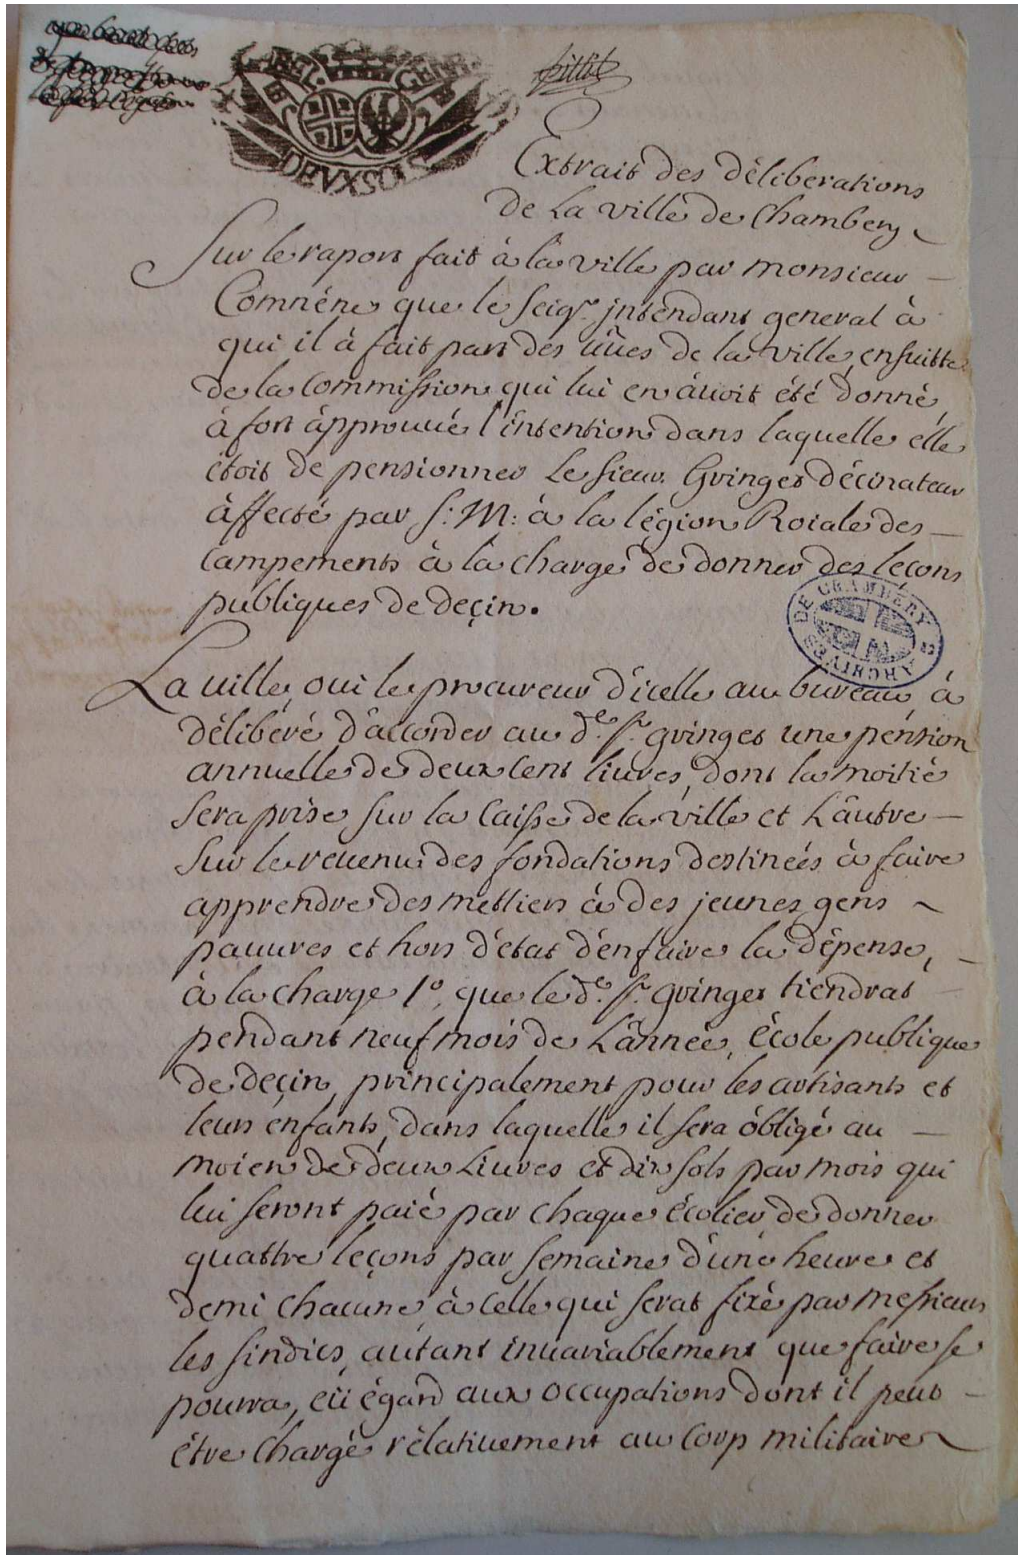 GAB. GEN.
DEUX SOLS
Extrait des déliberations
de la ville de Chambery
Sur le raport fait à la ville par monsieur
Comnéne que le seigr. jntendant general à
qui il à fait part des vües de la ville, ensuitte
de la commission qui lui en àvoit été donné,
à fort àpprouué l'intention dans laquelle élle
étoit de pensionner le sieur Gringet décinateur
àffecté par S: M: à la légion Roiale des
campements à la charge de donner des leçons
publiques de deçin.
ARCHIVES DE CHAMBERY
La uille, oui le procureur d'icelle au bureau, à
délibéré d'accorder au de. sr. gringet une pénsion
annuelle de deux cent liures, dont la moitié
sera prise sur la caisse de la ville et l'àutre
sur le reuenu des fondations destineés à faire
apprendre des mettiers à des jeunes gens
pauures et hors d'état d'en faire la dépense,
à la charge 1o. que le de. sr. gringet tiendrat
pendant neuf mois de l'année, école publique
de deçin, principalement pour les artisants et
leurs enfants, dans laquelle il sera óbligé au
moien de deux Liures et dix sols par mois qui
lui seront paié par chaque écolier, de donner
quattre leçons par semaine d'une heure et
demi chacune, à celle qui serat fixé par messieurs
les sindics, autant inuariablement que faire se
pourra, eü égard aux occupations dont il peut
étre chargé rélatiuement au corp militaire